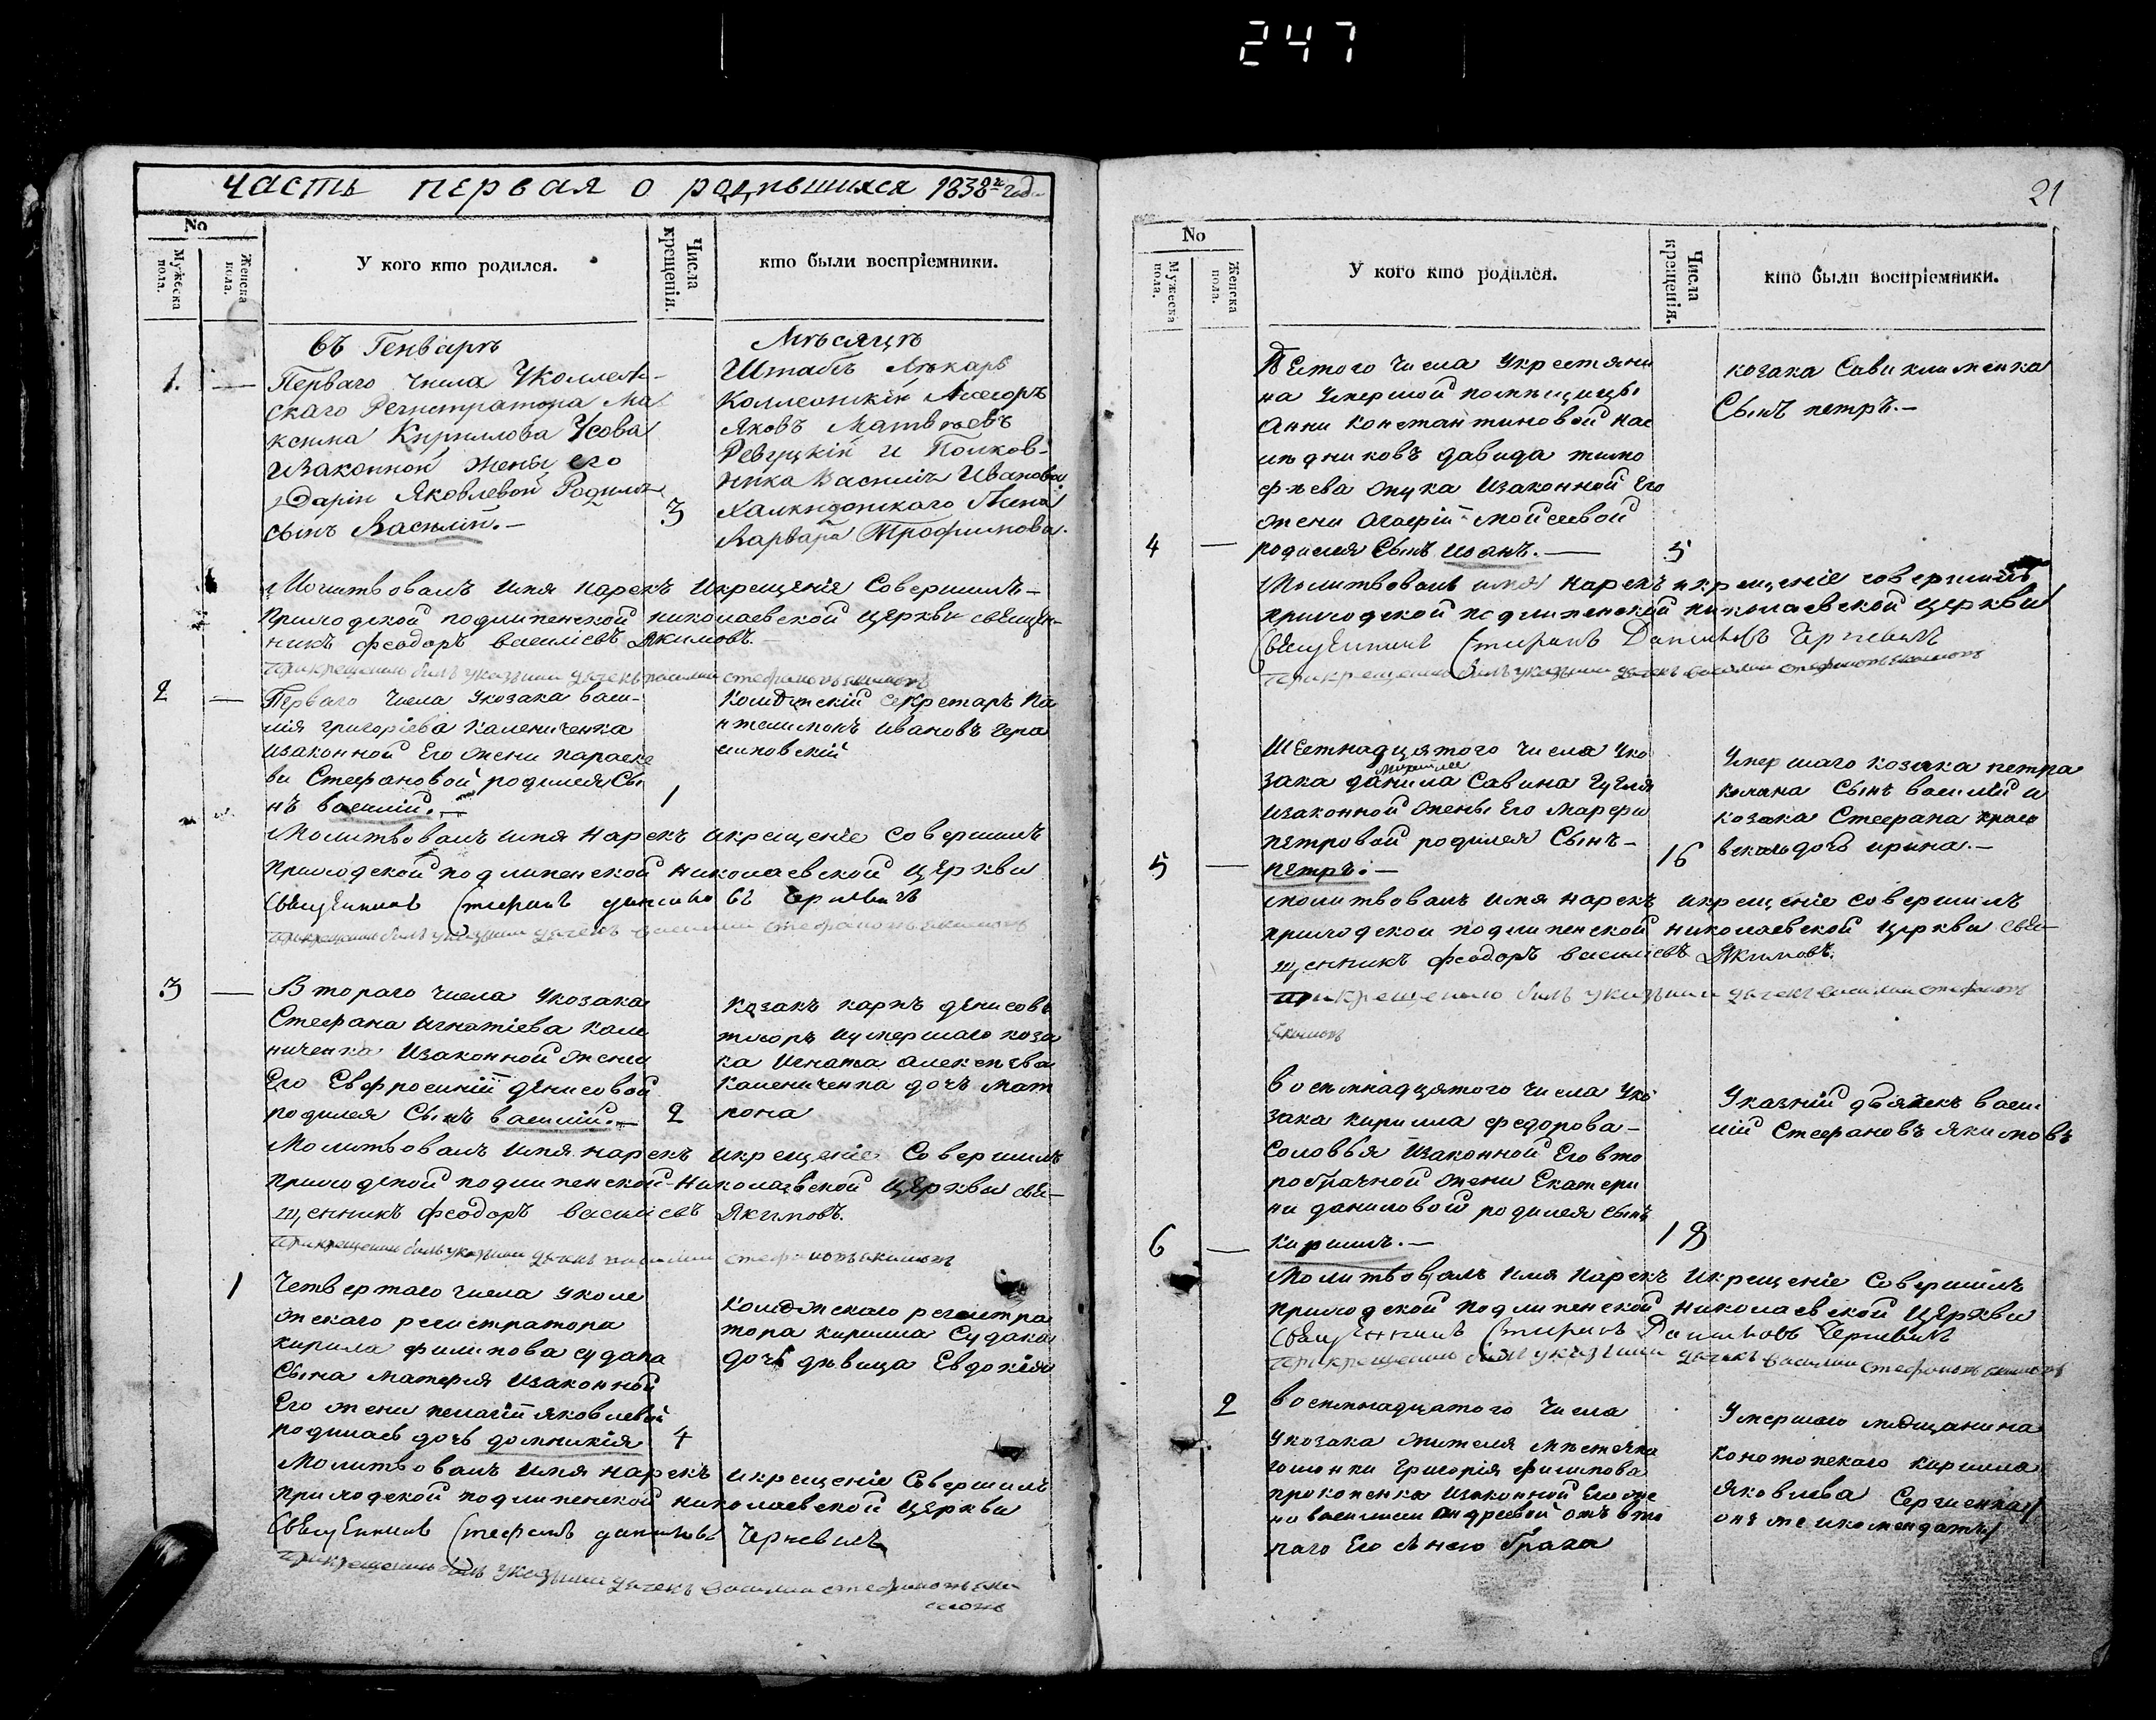 247
часть первая о родившихся 1838го года
No
Мужеска пола.
Женска пола.
У кого кто родился.
Числа крещенія.
кто были воспріемники.
въ Генварѣ
Мѣсяцѣ
1. —
Перваго числа Уколлеж-
скаго Регистратора Ма
ксима Кириллова Усова
изаконной жены его
Дарiи Яковлевой Родился
сынъ Василій. —
3
Штабъ Лѣкарь
Коллежскій Асесоръ
Яковъ Матвѣевъ
Ревуцкій и Полков-
ника Василія Иванова
Халкидонскаго Жена
Варвара Трофимова.
Молитвовалъ имя нарекъ икрещеніе Совершилъ —
приходской подлипенской николаевской церкви свещен-
никъ феодоръ василіевъ Якимовъ. —
прикрещении билъ указний дячекъ василий стефановъ якимовъ
2 —
Перваго числа Укозака васи-
лія григоріева калениченка
изаконной Его жени параске
ви Стефановой родился Сы
нъ василій. —
1
Колѣжскій секретарь Па
нтелимонъ ивановъ гера
симовскій
Молитвовалъ имя нарекъ икрещеніе совершилъ
приходской подлипенской николаевской церкви
Священникъ Стефанъ данило въ Черневичъ
прикрещении билъ указний дячекъ василий стефановъ якимовъ
3 —
Втораго числа Укозака
Стефана игнатіева кале
ниченка изаконной жени
Его Евфросиніи денисовой
родился Сынъ василій. —
2
Козакъ карпъ денисовъ
иумершаго коза
ка игната алексѣева
калениченка дочь мат
рона
Молитвовалъ имя нарекъ икрещеніе Совершилъ
приходской подлипенской николаевской церкви свя-
щенникъ феодоръ василіевъ Якимовъ.
прикрещении билъ указний дячекъ василий стефановъ якимовъ
1
Четвертаго числа уколе
жскаго регистратора
кирила филипова судака
Сына изаконной
Его жени пелагіи яковлевой
родилась дочь домникія
4
Колѣжскаго регистра
тора кирилла Судака
дочь дѣвица Евдокія
Молитвовалъ имя нарекъ икрещеніе Совершилъ
приходской подлипенской николаевской церкви
Священникъ Стефанъ даниловъ Черневичъ
прикрещении билъ указний дячекъ василий стефановъ яки
мовъ
21
No
Мужеска пола.
Женска пола.
У кого кто родился.
Числа крещенія.
кто были воспріемники.
числа Укрестяни
на умершой помѣщицы
Анни константиновой нас
лѣдниковъ давида тимо
фѣева изаконной Его
жени Агафіи мойсеевой
4 —
родился Сынъ иоанъ. —
5
козака Сави клименка
Сынъ петръ. —
Молитвовалъ имя нарекъ икрещеніе совершилъ
приходской подлипенской николаевской церкви
Священникъ Стефанъ Даниловъ Черневичъ
прикрещении билъ указний дячекъ василий стефановъ якимовъ
Шестнадцятого числа Уко
зака данила Савина
изаконной жены Его марфи
петровой родился Сынъ —
5 —
петръ. —
16
Умершаго козака петра
Сынъ василій и
козака Стефана
дочь ирина. —
молитвовалъ имя нарекъ икрещеніе совершилъ
приходской подлипенской николаевской церкви свя-
щенникъ феодоръ василіевъ Якимовъ.
прикрещению билъ указний дячекъ василий стефановъ
якимовъ
восемнадцятого числа Уко
зака кирилла федорова —
Соловья изаконной Его вто
робрачной жени Екатери
ни даниловой родился сынъ
6 —
кирилъ. —
19
Указній дьячекъ васи-
лій Стефановъ якимовъ
Молитвовалъ имя нарекъ икрещеніе Совершилъ
приходской подлипенской николаевской церкви
Священникъ Стефанъ Даниловъ Черневичъ
прикрещении билъ указний дячекъ василий стефановъ якимовъ
2
восемнадцатого числа
Укозака жителя мѣстечка
григорія филипова
прокопенка изаконной Его же
ни василиси андреевой отъ вто
раго Его снею брака
Умершаго мѣщанина
конотопскаго кирилла
яковлева Сергиенка